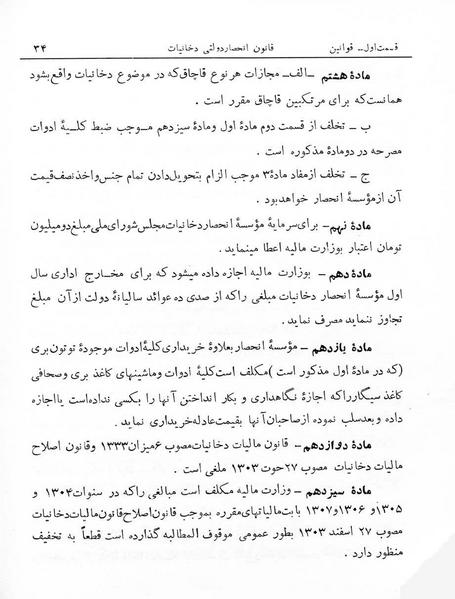 قسمت اول – قوانین قانون انحصار دولتی دخانیات ۳۴
مادهٔ هشتم – الف – مجازات هر نوع قاچاق که در موضوع دخانیات واقع بشود
همانست که برای مرتکبین قاچاق مقرر است .
ب – تخلف از قسمت دوم مادهٔ اول و مادهٔ سیزدهم موجب ضبط کلیهٔ ادوات
مصرحه در دو مادهٔ مذکوره است .
ج – تخلف از مفاد مادهٔ ۳ موجب الزام بتحویل دادن تمام جنس و اخذ نصف قیمت
آن از مؤسسهٔ انحصار خواهد بود .
مادهٔ نهم – برای سرمایهٔ مؤسسهٔ انحصار دخانیات مجلس شورای ملی مبلغ دو میلیون
تومان اعتبار بوزارت مالیه اعطا مینماید .
مادهٔ دهم – بوزارت مالیه اجازه داده میشود که برای مخارج اداری سال
اول مؤسسهٔ انحصار دخانیات مبلغی را که از صدی ده عوائد سالیانهٔ دولت از آن مبلغ
تجاوز ننماید مصرف نماید .
مادهٔ یازدهم – مؤسسهٔ انحصار بعلاوهٔ خریداری کلیهٔ ادوات موجودهٔ توتون بری
(که در مادهٔ اول مذکور است) مکلف است کلیهٔ ادوات و ماشینهای کاغذ بری و صحافی
کاغذ سیگار را که اجازهٔ نگاهداری و بکار انداختن آنها را بکسی نداده است یا اجازه
داده و بعد سلب نموده از صاحبان آنها بقیمت عادله خریداری نماید .
مادهٔ دوازدهم – قانون مالیات دخانیات مصوب ۶ میزان ۱۳۳۳ و قانون اصلاح
مالیات دخانیات مصوب ۲۷ حوت ۱۳۰۳ ملغی است .
مادهٔ سیزدهم – وزارت مالیه مکلف است مبالغی را که در سنوات ۱۳۰۴ و
۱۳۰۵ و ۱۳۰۶ و ۱۳۰۷ بابت مالیاتهای مقرره بموجب قانون اصلاح قانون مالیات دخانیات
مصوب ۲۷ اسفند ۱۳۰۳ بطور عمومی موقوف المطالبه گذارده است قطعاً به تخفیف
منظور دارد .